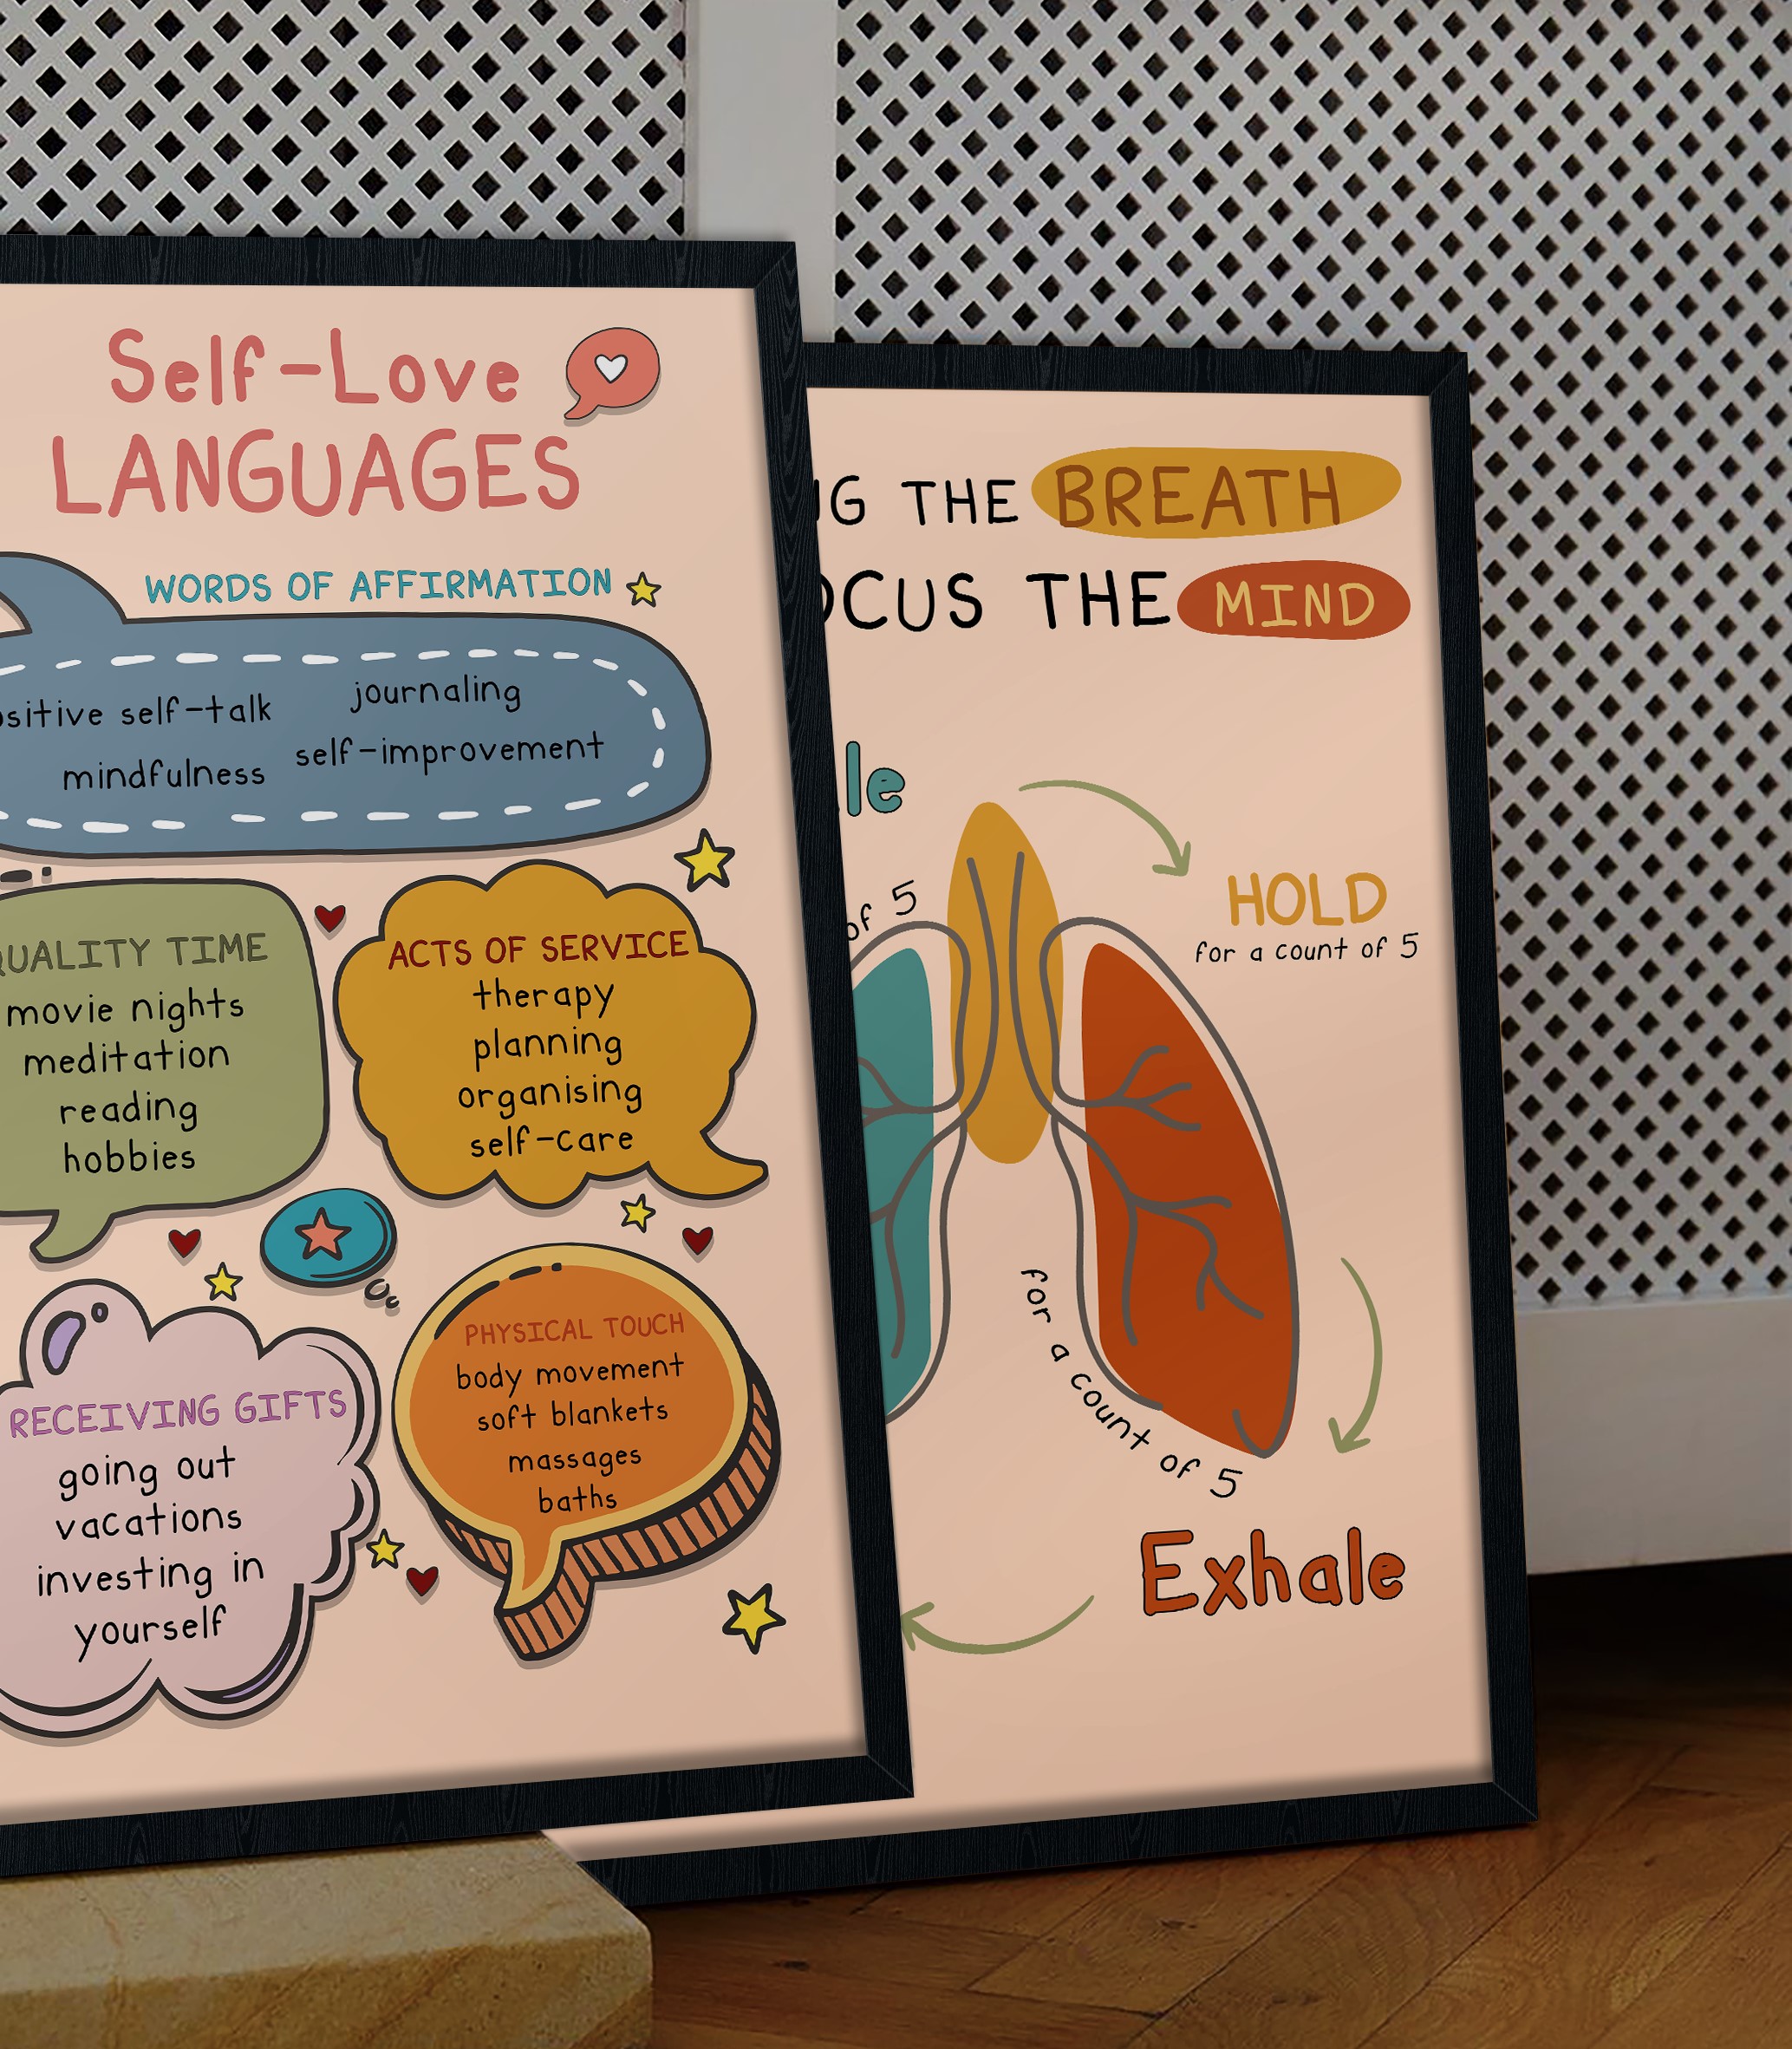 Self-Love
LANGUAGES
WORDS OF AFFIRMATION
self-talk
journaling
mindfulness
self-improvement
TIME
movie nights
meditation
reading
hobbies
ACTS OF SERVICE
therapy
planning
organising
self-care
RECEIVING GIFTS
going out
vacations
investing in
yourself
PHYSICAL TOUCH
body movement
soft blankets
massages
baths
THE BREATH
THE MIND
of 5
HOLD
for a count of 5
for a count of 5
Exhale